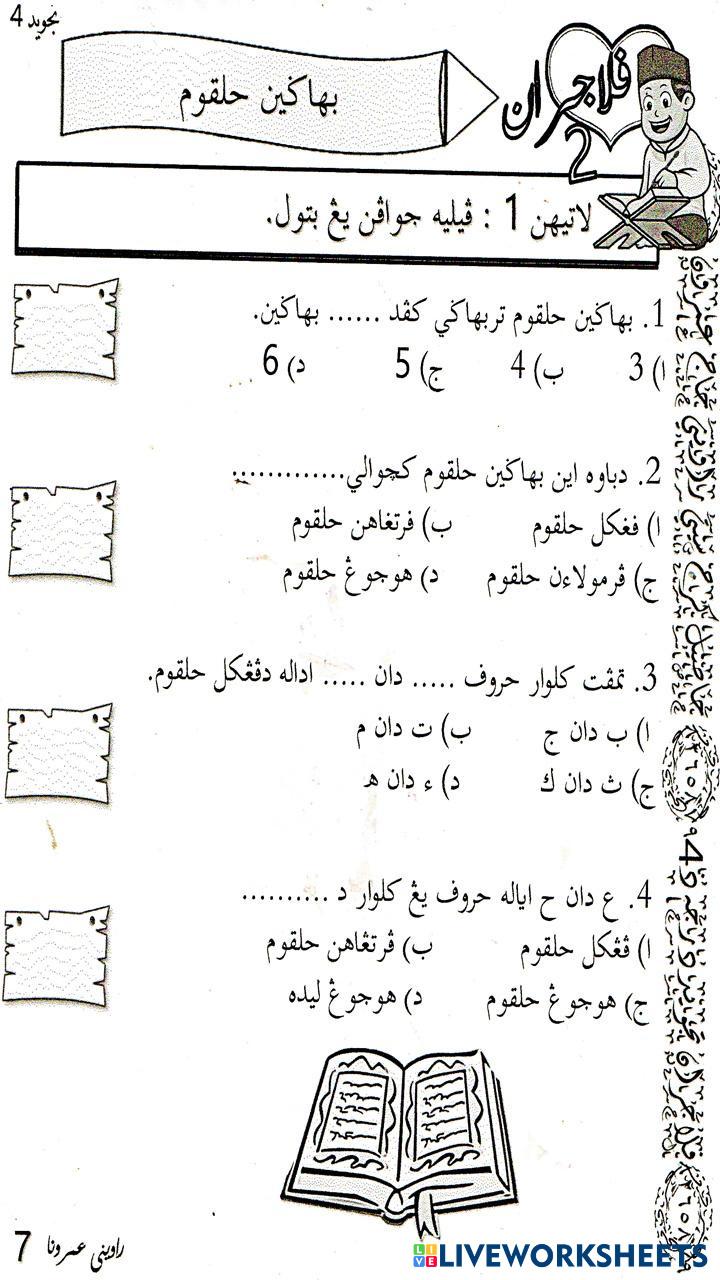 تجويد 4
ڤلاجرن
2
بهاݢين حلقوم
لاتيهن 1 : ڤيليه جواڤن يڠ بتول.
1. بهاݢين حلقوم تربهاݢي كڤد ...... بهاݢين.
ا) 3 ب) 4 ج) 5 د) 6
2. دباوه اين بهاݢين حلقوم كچوالي.............
ا) ڤڠكل حلقوم ب) ڤرتڠاهن حلقوم
ج) ڤرمولاءن حلقوم د) هوجوڠ حلقوم
3. تمڤت كلوار حروف ..... دان ..... اداله دڤڠكل حلقوم.
ا) ب دان ج ب) ت دان م
ج) ث دان ك د) ء دان هـ
4. ع دان ح اياله حروف يڠ كلوار د ..........
ا) ڤڠكل حلقوم ب) ڤرتڠاهن حلقوم
ج) هوجوڠ حلقوم د) هوجوڠ ليده
7
LIVEWORKSHEETS